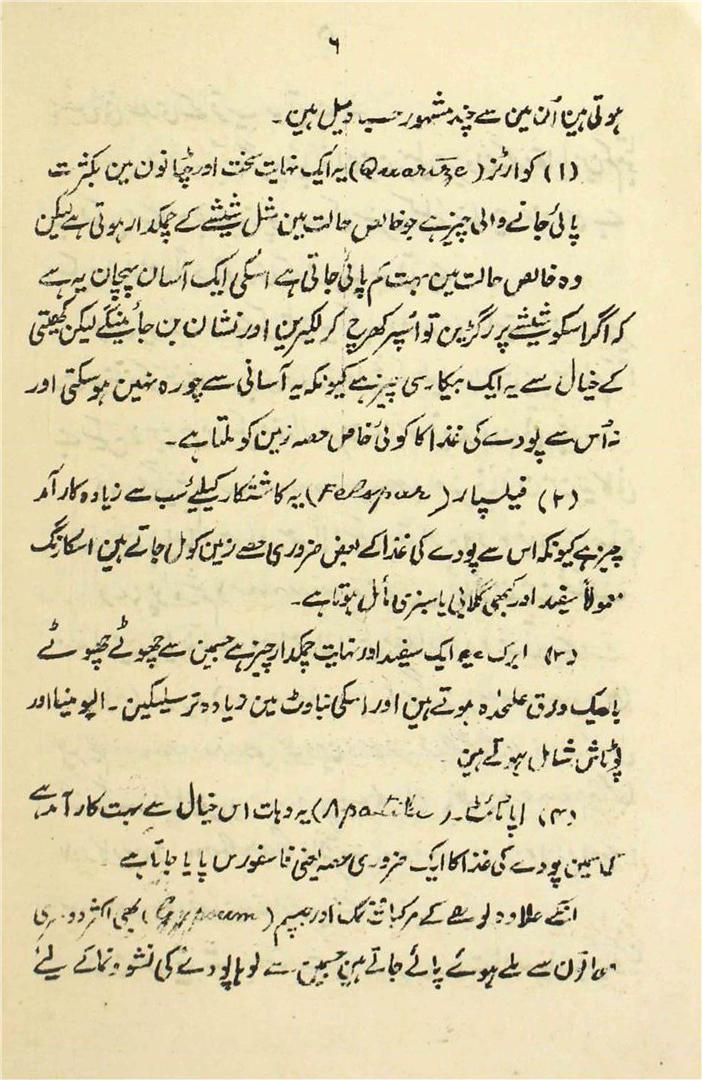 ۶
ہوتی ہین اُن مین سے چند مشہور حسب ذیل ہین۔
(۱) کوارٹز (Quartze) یہ ایک نہایت سخت اور چٹانون مین بکثرت
پائی جانے والی چیز ہے جو خالص حالت مین مثل شیشے کے چمکدار ہوتی ہے لیکن
وہ خالص حالت مین بہت کم پائی جاتی ہے اسکی ایک آسان پہچان یہ ہے
کہ اگر اسکو شیشے پر رگڑین تو اسپر کھرچ کر لکیرین اور نشان بن جائینگے لیکن کھیتی
کے خیال سے یہ ایک بیکار سی چیز ہے کیونکہ یہ آسانی سے چورہ نہین ہوسکتی اور
نہ اُس سے پودے کی غذا کا کوئی خاص حصہ زمین کو ملتا ہے۔
(۲) فیلسپار (Felspar) یہ کاشتکار کیلیے سب سے زیادہ کار آمد
چیز ہے کیونکہ اس سے پودے کی غذا کے بعض ضروری حصے زمین کو مل جاتے ہین اسکا رنگ
معمولاً سفید اور کبھی گلابی یا سبزی مائل ہوتا ہے۔
(۳) ابرک یہ ایک سفید اور نہایت چمکدار چیز ہے جسمین سے چھوٹے چھوٹے
باریک ورق علٰحدہ ہوتے ہین اور اسکی بناوٹ مین زیادہ تر سلیکین۔ الیومینا اور
پوٹاش شامل ہوتے ہین
(۴) اپاٹائٹ۔ (Apatite) یہ دہات اس خیال سے بہت کار آمد ہے
کہ اسمین پودے کی غذا کا ایک ضروری حصہ یعنی فاسفورس پایا جاتا ہے
انکے علاوہ لوہے کے مرکبات نمک اور جپسم (Gypsum) بھی اکثر دوسری
دہاتون سے ملے ہوئے پائے جاتے ہین جسمین سے لوہا پودے کی نشو و نما کے لیے